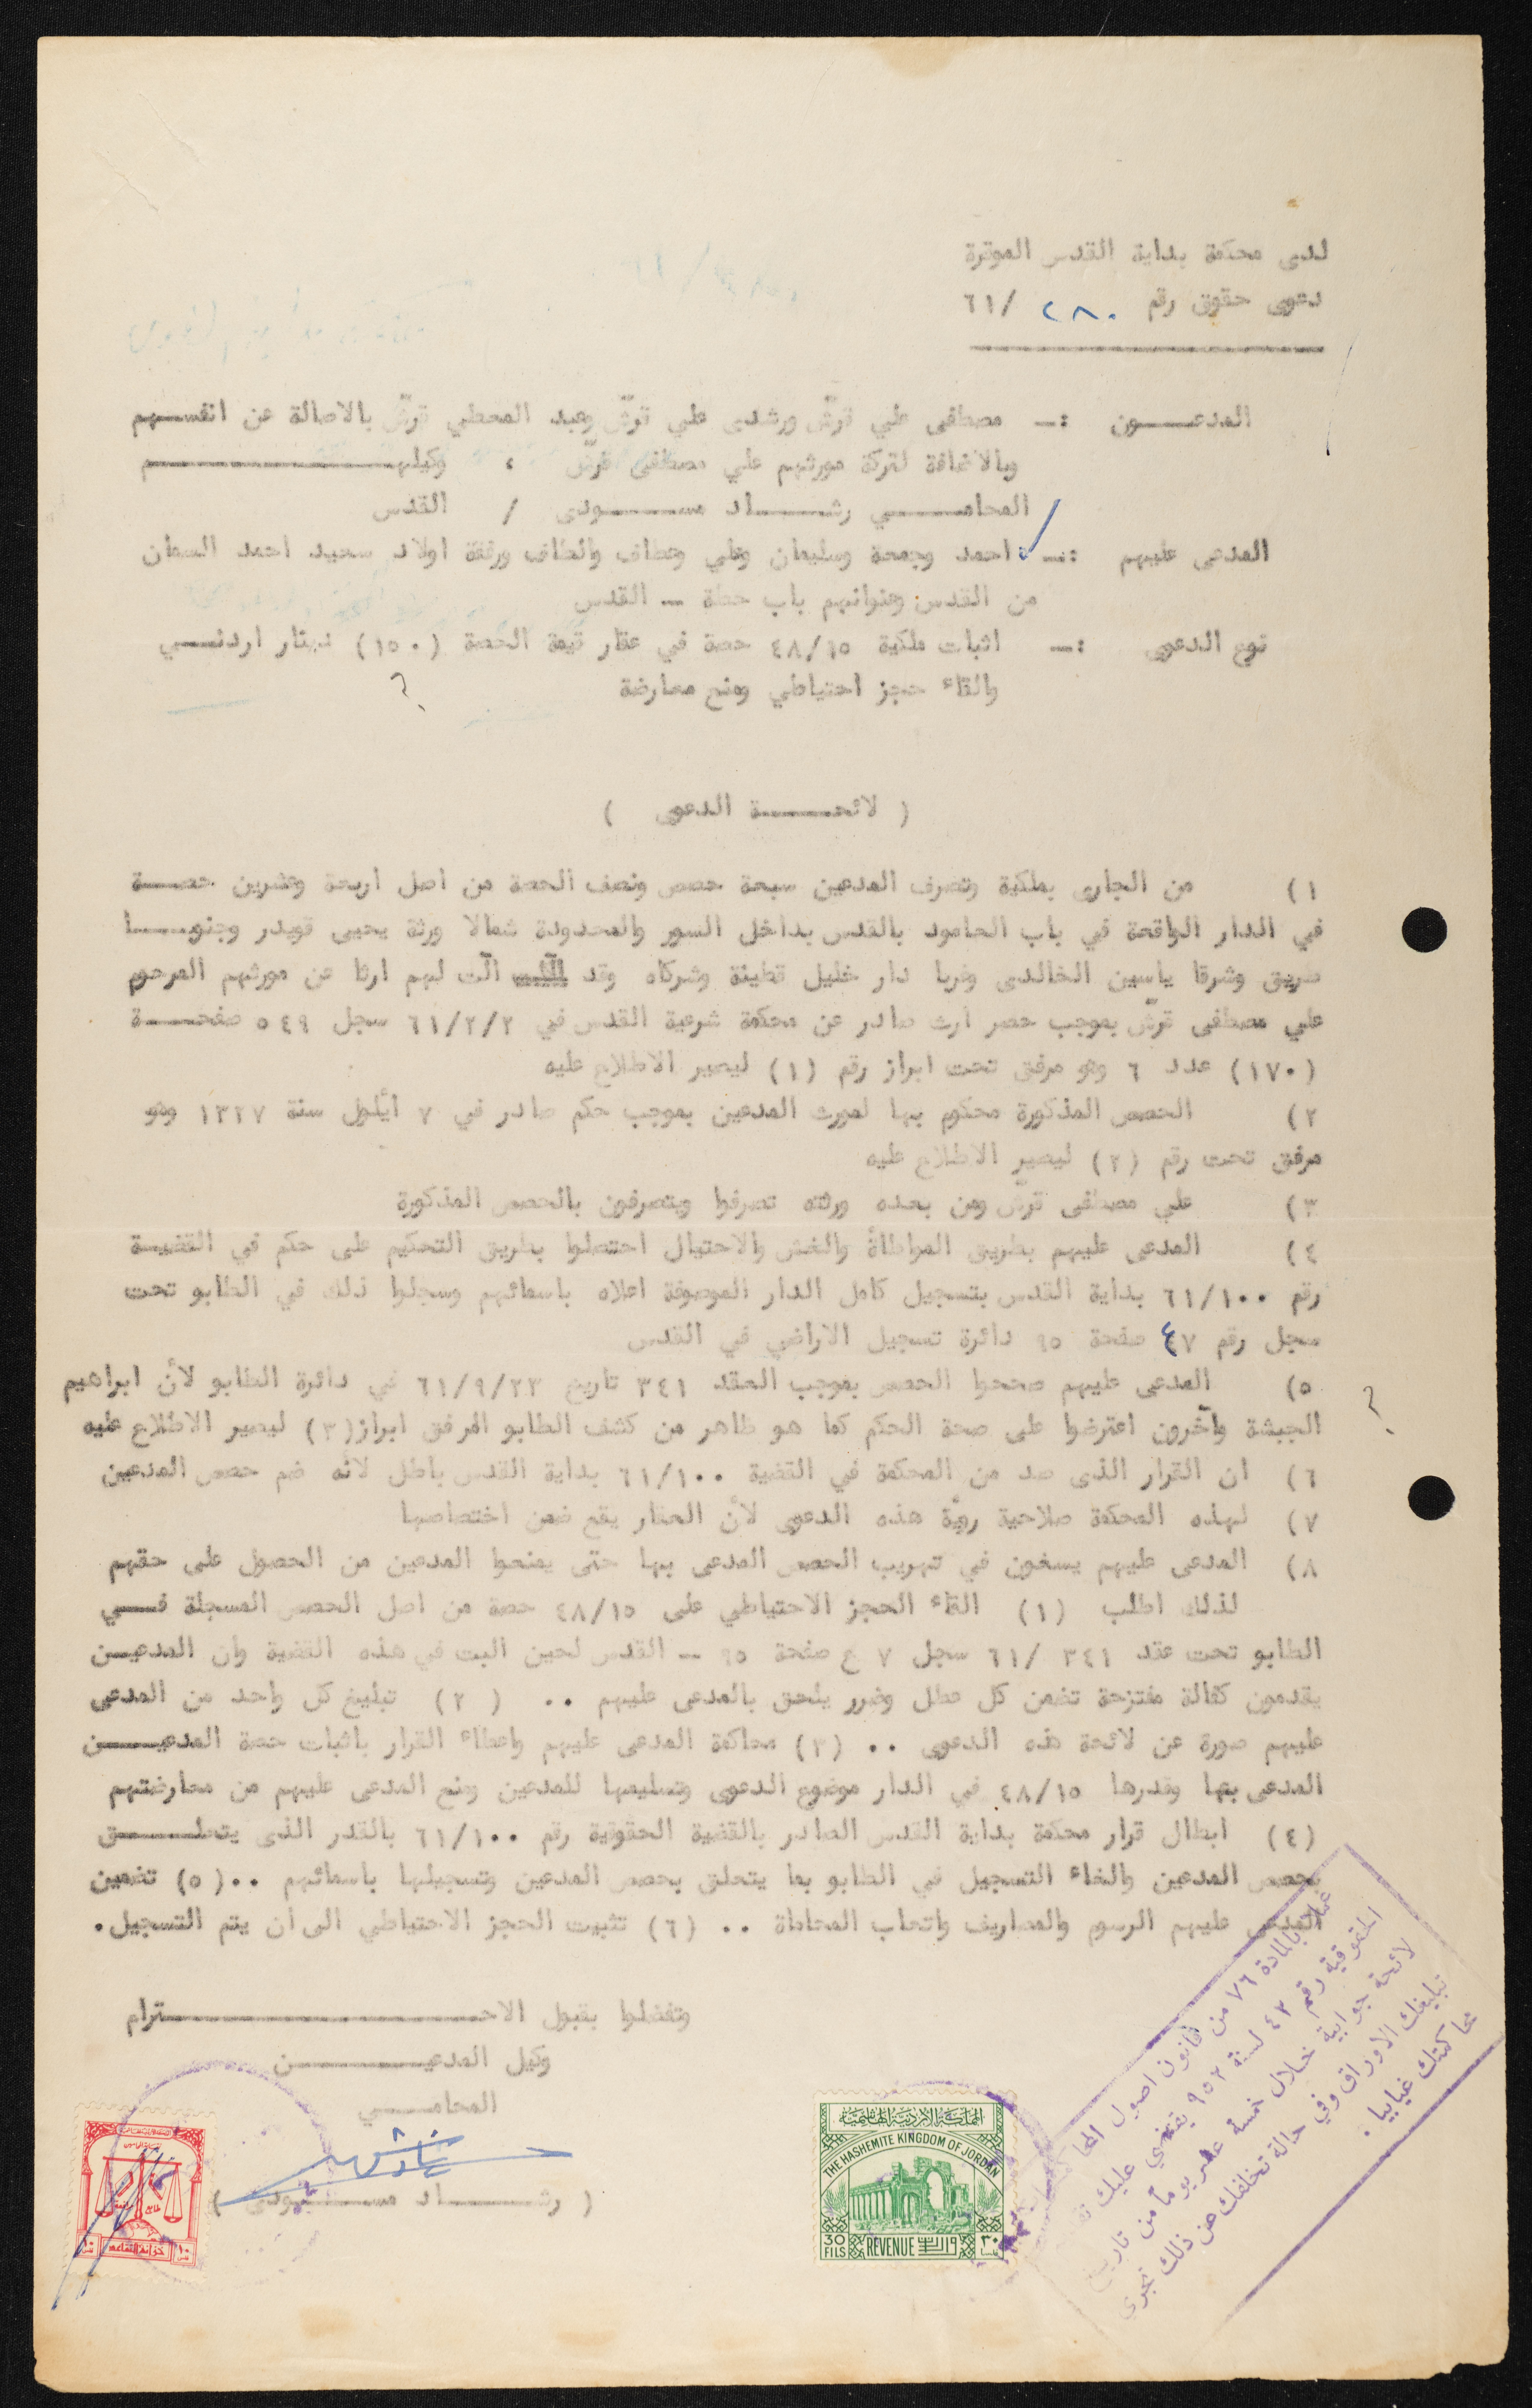 لدى محكمة بداية القدس الموقرة
دعوى حقوق رقم ٢٨٠ /٦١
المدعـــــون :ـ مصطفى علي قرش ورشدى علي قرش وعبد المعطي قرش بالاصالة عن انفسـهم
وبالاضافة لتركة مورثهم علي مصطفى قرش ، وكيلهـــــــــــــم
المحامـــــي رشــــاد مســــودى / القدس
المدعى عليهم :ـ احمد وجمعة وسليمان وعلي وعطاف والطاف ورفقة اولاد سعيد احمد السمان
من القدس وعنوانهم باب حطة ـ القدس
نوع الدعوى :ـ اثبات ملكية ٤٨/١٥ حصة في عقار قيمة الحصة (١٥٠) دينار اردنـــي
والقاء حجز احتياطي ومنع معارضة
( لائحــــــة الدعوى )
١) من الجارى بملكية وتصرف المدعين سبعة حصص ونصف الحصة من اصل اربعة وعشرين حصـــة
في الدار الواقعة في باب العامود بالقدس بداخل السور والمحدودة شمالا ورثة يحيى قويدر وجنوبـــا
طريق وشرقا ياسين الخالدى وغربا دار خليل قطينة وشركاه وقد آلت لهم ارثا عن مورثهم المرحوم
علي مصطفى قرش بموجب حصر ارث صادر عن محكمة شرعية القدس في ٦١/٢/٢ سجل ٥٤٩ صفحــــة
(١٧٠) عدد ٦ وهو مرفق تحت ابراز رقم (١) ليصير الاطلاع عليه
٢) الحصص المذكورة محكوم بها لمورث المدعين بموجب حكم صادر في ٧ ايلول سنة ١٣٢٧ وهو
مرفق تحت رقم (٢) ليصير الاطلاع عليه
٣) علي مصطفى قرش ومن بعده ورثته تصرفوا ويتصرفون بالحصص المذكورة
٤) المدعى عليهم بطريق المواطأة والغش والاحتيال احتصلوا بطريق التحكيم على حكم في القضيـة
رقم ٦١/١٠٠ بداية القدس بتسجيل كامل الدار الموصوفة اعلاه باسمائهم وسجلوا ذلك في الطابو تحت
سجل رقم ٤٧ صفحة ٩٥ دائرة تسجيل الاراضي في القدس
٥) المدعى عليهم صححوا الحصص بموجب العقد ٣٤١ تاريخ ٦١/٩/٢٣ في دائرة الطابو لأن ابراهيم
الجبشة وآخرون اعترضوا على صحة الحكم كما هو ظاهر من كشف الطابو المرفق ابراز(٣) ليصير الاطلاع عليه
٦) ان القرار الذى صد من المحكمة في القضية ٦١/١٠٠ بداية القدس باطل لأنه ضم حصص المدعين
٧) لهذه المحكمة صلاحية رؤية هذه الدعوى لأن العقار يقع ضمن اختصاصها
٨) المدعى عليهم يسغون في تهريب الحصص المدعى بها حتى يمنعوا المدعين من الحصول على حقهم
لذلك اطلب (١) القاء الحجز الاحتياطي على ٤٨/١٥ حصة من اصل الحصص المسجلة فـــي
الطابو تحت عقد ٣٤١ /٦١ سجل ٧ ع صفحة ٩٥ ـ القدس لحين البت في هذه القضية وان المدعيــن
يقدمون كفالة مقترحة تضمن كل عطل وضرر يلحق بالمدعى عليهم .. (٢) تبليغ كل واحد من المدعى
عليهم صورة عن لائحة هذه الدعوى .. (٣) محاكمة المدعى عليهم واعطاء القرار باثبات حصة المدعيــــن
المدعى بها وقدرها ٤٨/١٥ في الدار موضوع الدعوى وتسليمها للمدعين ومنع المدعى عليهم من معارضتهم
(٤) ابطال قرار محكمة بداية القدس الصادر بالقضية الحقوقية رقم ٦١/١٠٠ بالقدر الذى يتعلــــق
بحصص المدعين والغاء التسجيل في الطابو بما يتعلق بحصص المدعين وتسجيلها باسمائهم ..(٥) تضمين
المدعى عليهم الرسوم والمصاريف واتعاب المحاماة .. (٦) تثبيت الحجز الاحتياطي الى ان يتم التسجيل.
وتفضلوا بقبول الاحـــــــــــــــــترام
وكيل المدعيــــــــــن
المحامــــي
( رشــــــاد مســــــودى )
عملا بالمادة ٧٦ من قانون اصول المحا
الحقوقية رقم ٤٢ لسنة ٩٥٢ يقتضي عليك تقـ
لائحة جوابية خلال خمسة عشر يوماً من تاريخ
تبليغك الاوراق وفي حالة تخلفك عن ذلك تجري
محاكمتك غيابيا.
المملكة الاردنية الهاشمية
THE HASHEMITE KINGDOM OF JORDAN
30 FILS REVENUE ٣٠